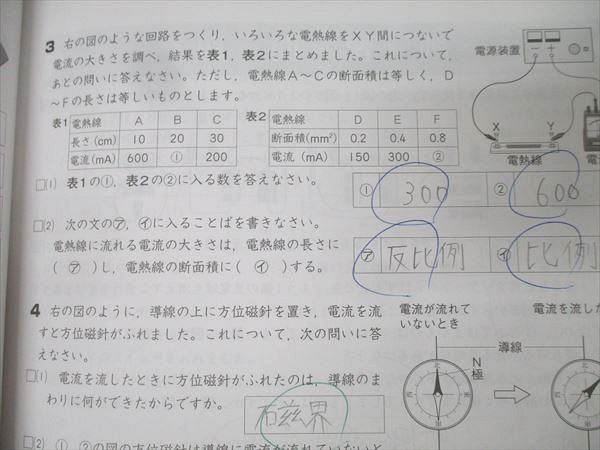 3 右の図のような回路をつくり，いろいろな電熱線をXY間につないで
電流の大きさを調べ，結果を表1，表2にまとめました。これについて，
あとの問いに答えなさい。ただし，電熱線A～Cの断面積は等しく，D
～Fの長さは等しいものとします。
電源装置
X Y
電熱線
表1 電熱線 A B C
長さ(cm) 10 20 30
電流(mA) 600 ① 200
表2 電熱線 D E F
断面積(mm²) 0.2 0.4 0.8
電流(mA) 150 300 ②
□(1) 表1の①，表2の②に入る数を答えなさい。
① 300 ② 600
□(2) 次の文の㋐，㋑に入ることばを書きなさい。
電熱線に流れる電流の大きさは，電熱線の長さに
（ ㋐ ）し，電熱線の断面積に（ ㋑ ）する。
㋐ 反比例 ㋑ 比例
4 右の図のように，導線の上に方位磁針を置き，電流を流
すと方位磁針がふれました。これについて，次の問いに答
えなさい。
電流が流れて
いないとき
電流を流した
導線
N
極
北
西 東
南
□(1) 電流を流したときに方位磁針がふれたのは，導線のま
わりに何ができたからですか。
磁界
□(2) ①，②の図の方位磁針は導線に電流が流れていないと